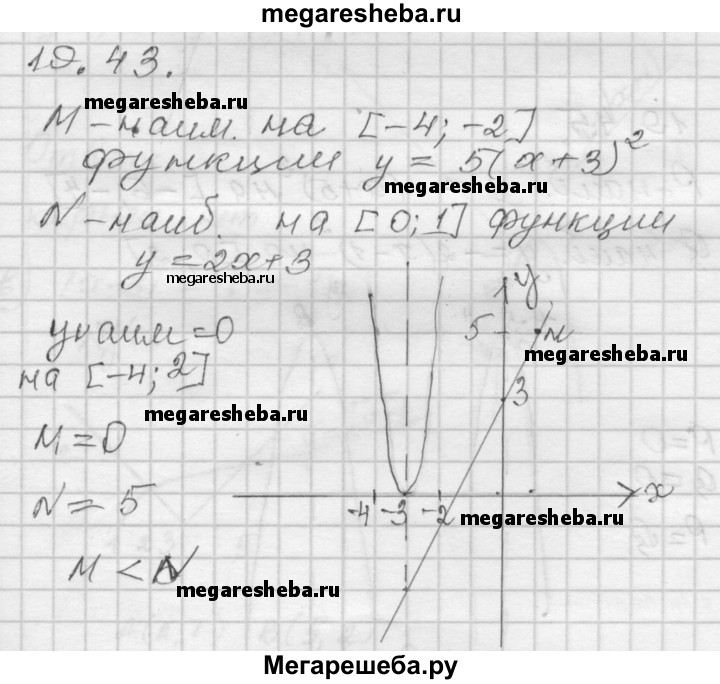 megaresheba.ru
19.43.
megaresheba.ru
M-наим. на [-4; -2]
функции y = 5(x+3)²
megaresheba.ru
N-наиб. на [0; 1] функции
y = 2x+3
megaresheba.ru
y
yнаим = 0
5
N
megaresheba.ru
на [-4; 2]
3
megaresheba.ru
M = 0
N = 5
-4 -3 -2
x
megaresheba.ru
M < N
megaresheba.ru
Мегарешеба.ру